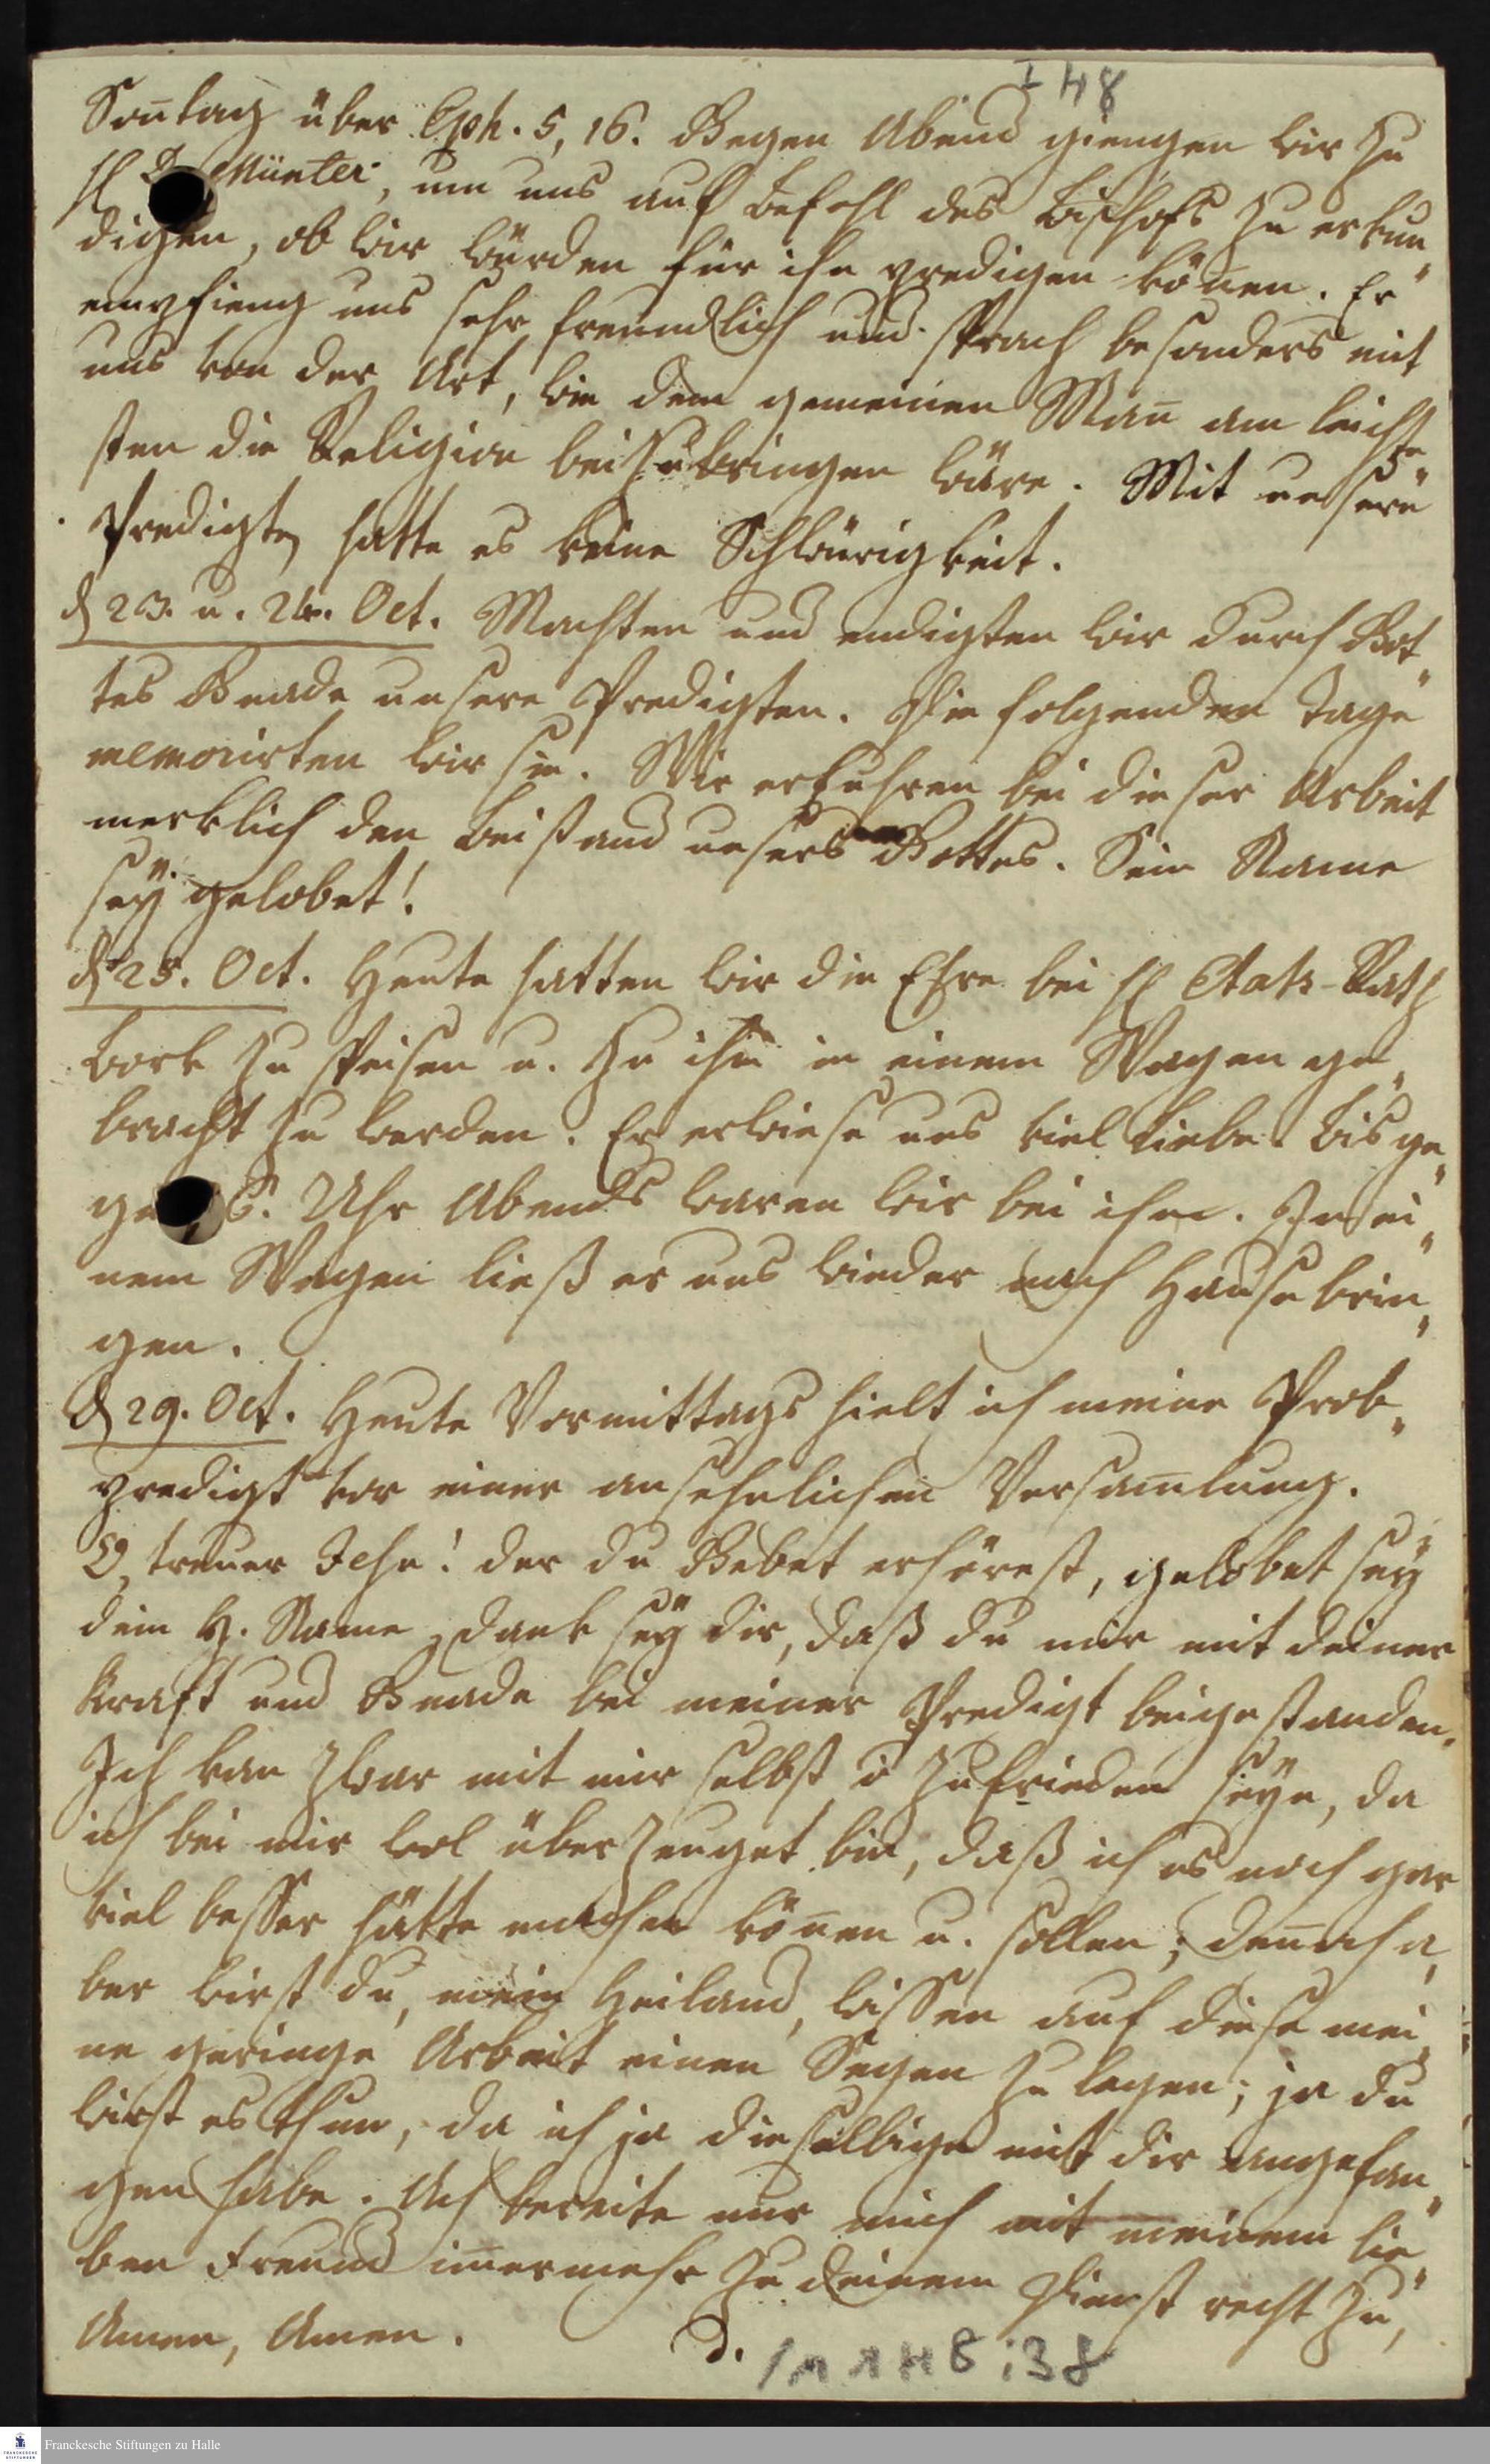 I H 8
Sontag über Eph. 5, 16. Gegen Abend giengen wir zu
H D Münter, um uns auf Befehl des Bischofs zu erkun„
digen, ob wir würden für ihn predigen könen. Er
empfieng uns sehr freundlich und sprach besonders mit
uns von der Art, wie dem gemeinen Man am leichte„
sten die Religion beizubringen wäre. Mit unsern
Predigten hatte es keine Schwürigkeit.
d 23. u. 24. Oct. Machten und endigten wir durch Got„
tes Gnade unsere Predigten. Die folgenden Tage
memorirten wir sie. Wir erfuhren bei dieser Arbeit
merklich den Beistand unsers Gottes. Sein Name
sey gelobet!
d 25. Oct. Heute hatten wir die Ehre bei H Etats-Rath
Bork zu speisen u. zu ihm in einem Wagen ge„
bracht zu werden. Er erwiese uns viel Liebe. Bis ge„
gen 6. Uhr Abends waren wir bei ihm. In ei„
nem Wagen ließ er uns wieder nach Hause brin„
gen.
d 29. Oct. Heute Vormittags hielt ich meine Prob„
predigt vor einer ansehnlichen Versamlung.
O, treuer Jesu! der du Gebet erhörest, gelobet sey
dein H. Name, Dank sey dir, daß du mir mit deiner
Kraft und Gnade bei meiner Predigt beigestanden.
Ich kan zwar mit mir selbst zufrieden seyn, da
ich bei mir wol überzeuget bin, daß ich es noch gar
viel besser hätte machen könen u. sollen; denoch a„
ber wirst du, mein Heiland, wissen auf diese mei„
ne geringe Arbeit einen Segen zu legen; ja du
wirst es thun, da ich ja dieselbige mit dir angefan„
gen habe. Ach bereite nur mich mit meinem lie„
ben Freund imermehr zu deinem Dienst recht zu,
Amen, Amen. d.
1 H 8 : 38
Franckesche Stiftungen zu Halle